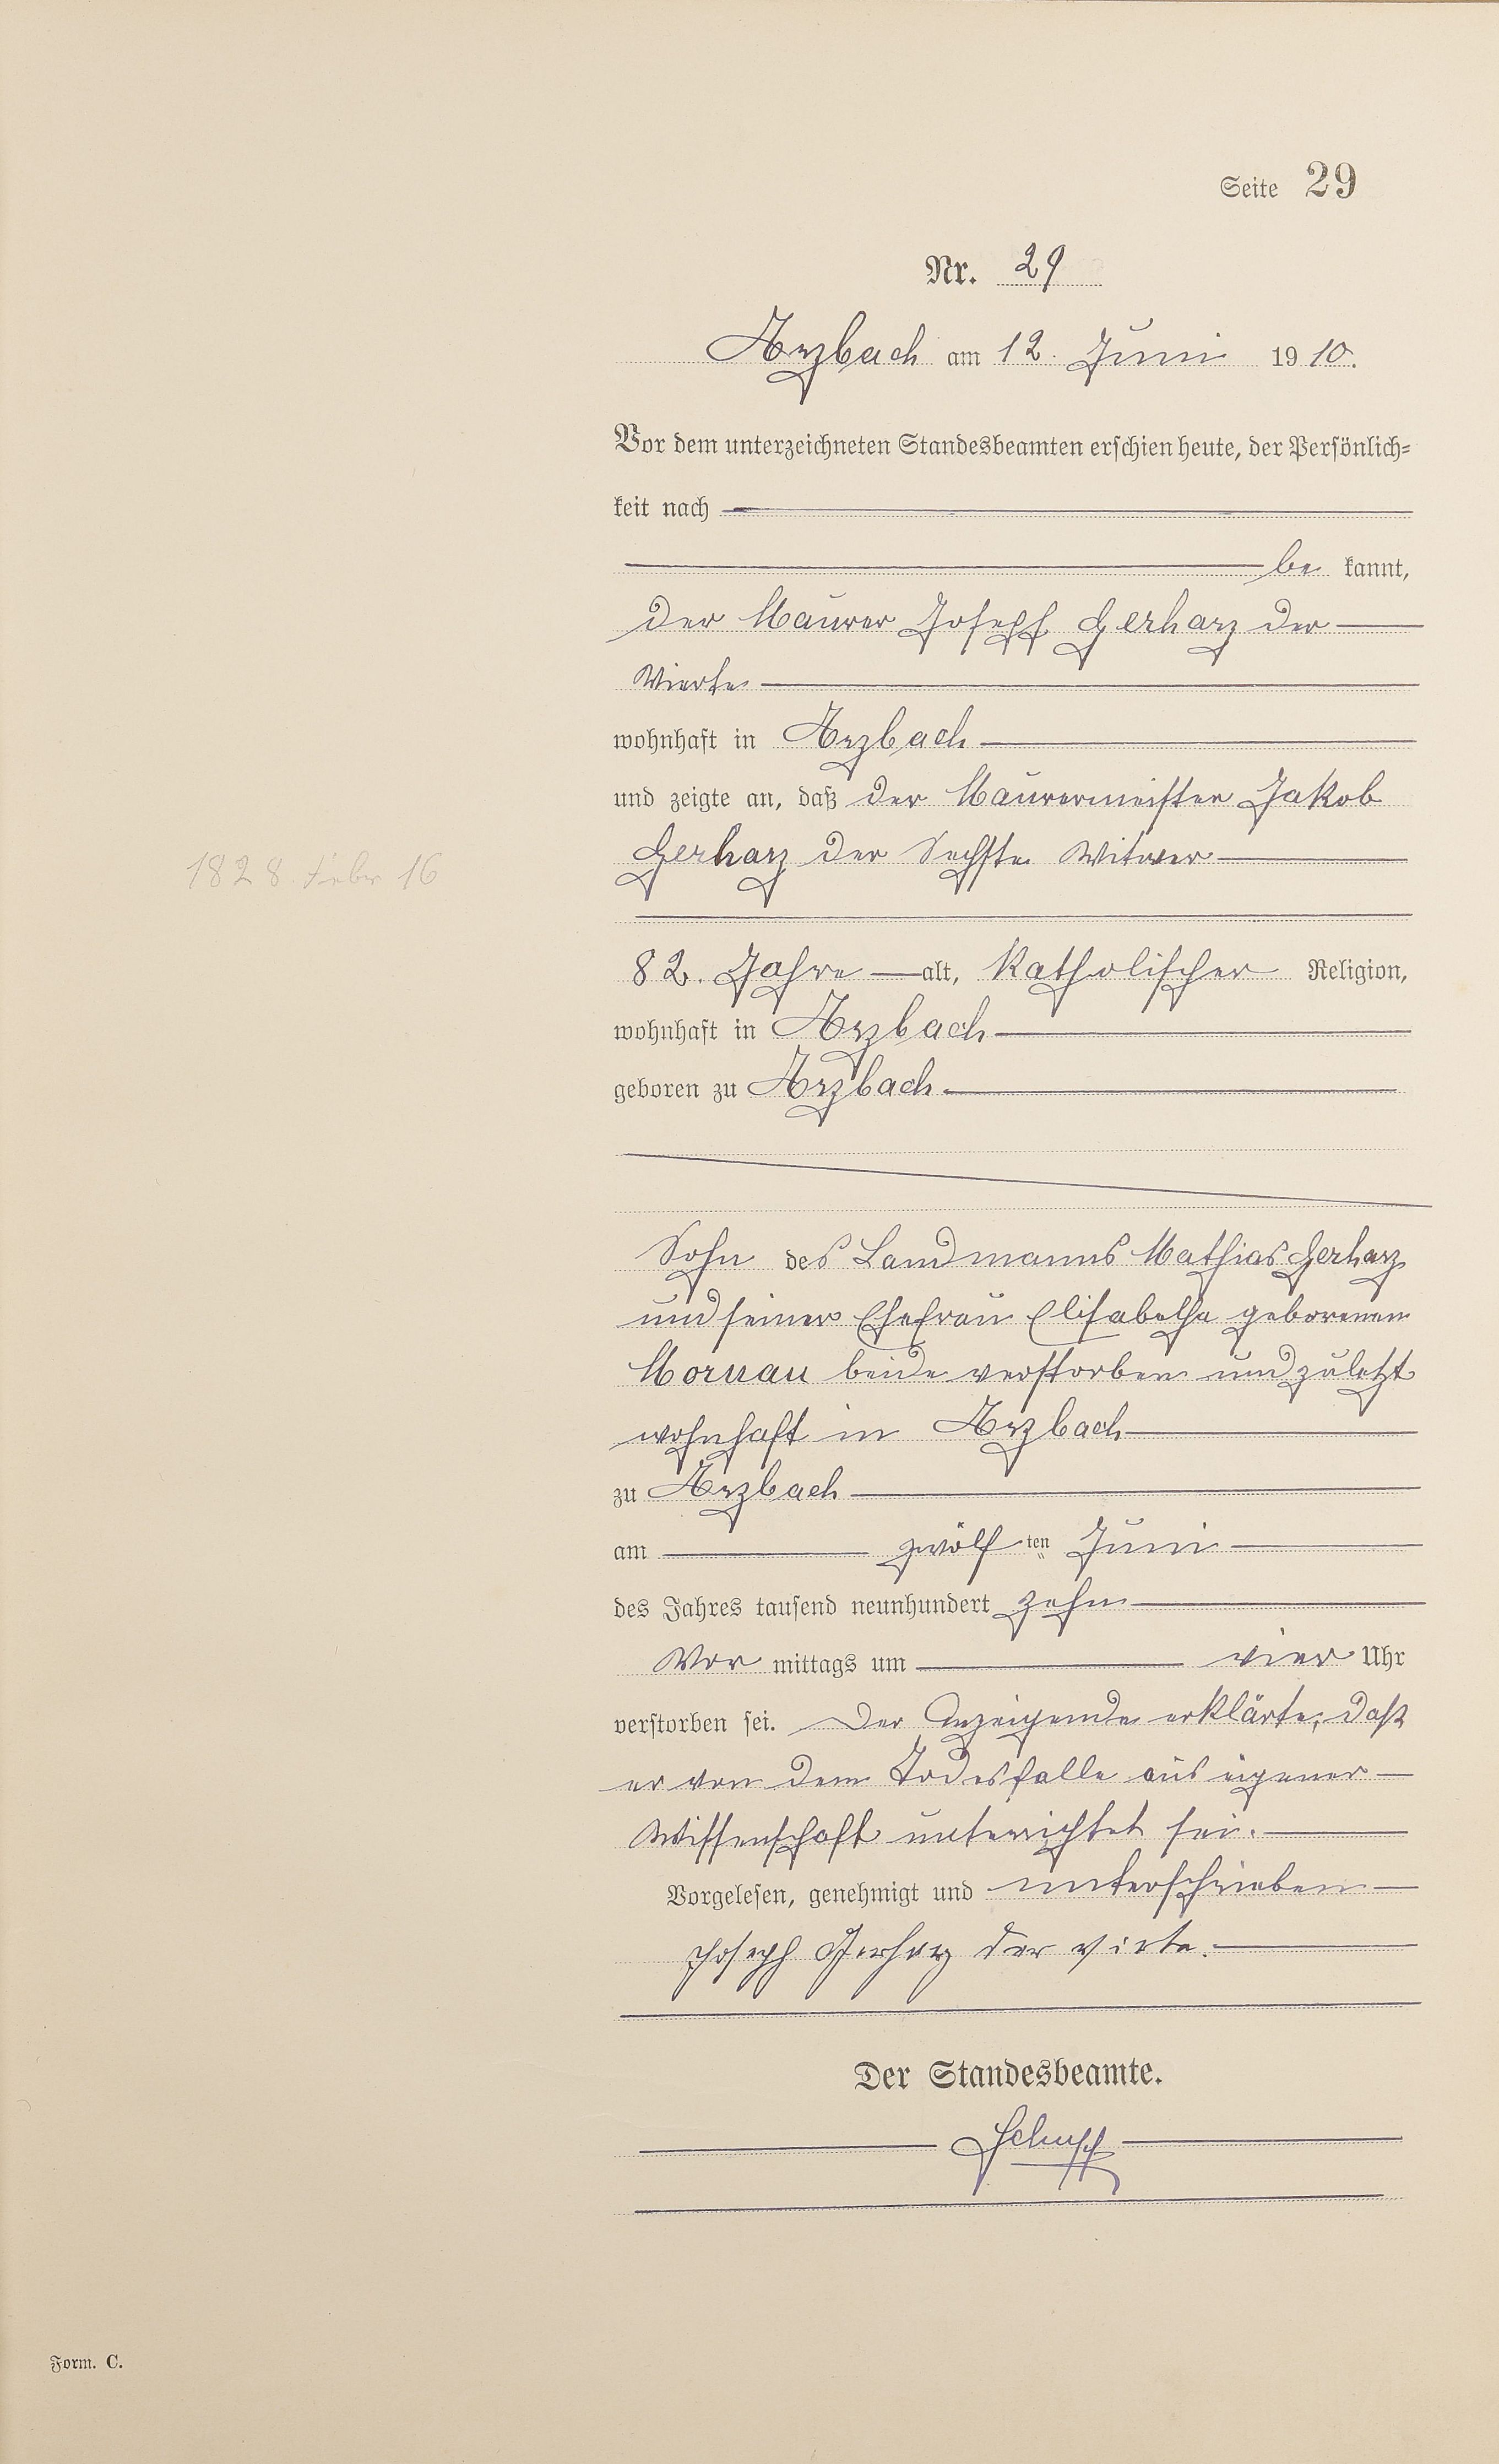 Seite 29
Nr. 29
Arzbach am 12. Juni 1910.
Vor dem unterzeichneten Standesbeamten erschien heute, der Persönlich-
keit nach
be kannt,
der Maurer Joseph Gerharz der
Vierte
wohnhaft in Arzbach
und zeigte an, daß der Maurermeister Jakob
Gerharz der Sechste Witwer
1828 Febr 16
82. Jahre alt, katholischer Religion,
wohnhaft in Arzbach
geboren zu Arzbach
Sohn des Landmanns Mathias Gerharz
und seiner Ehefrau Elisabetha geborenen
Mornau beide verstorben und zuletzt
wohnhaft in Arzbach
zu Arzbach
am zwölf ten Juni
des Jahres tausend neunhundert zehn
Vor mittags um vier Uhr
verstorben sei. Der Anzeigende erklärte, daß
er von dem Todesfalle aus eigener
Wissenschaft unterrichtet sei.
Vorgelesen, genehmigt und unterschrieben
Joseph Gerharz der virte.
Der Standesbeamte.
Form. C.